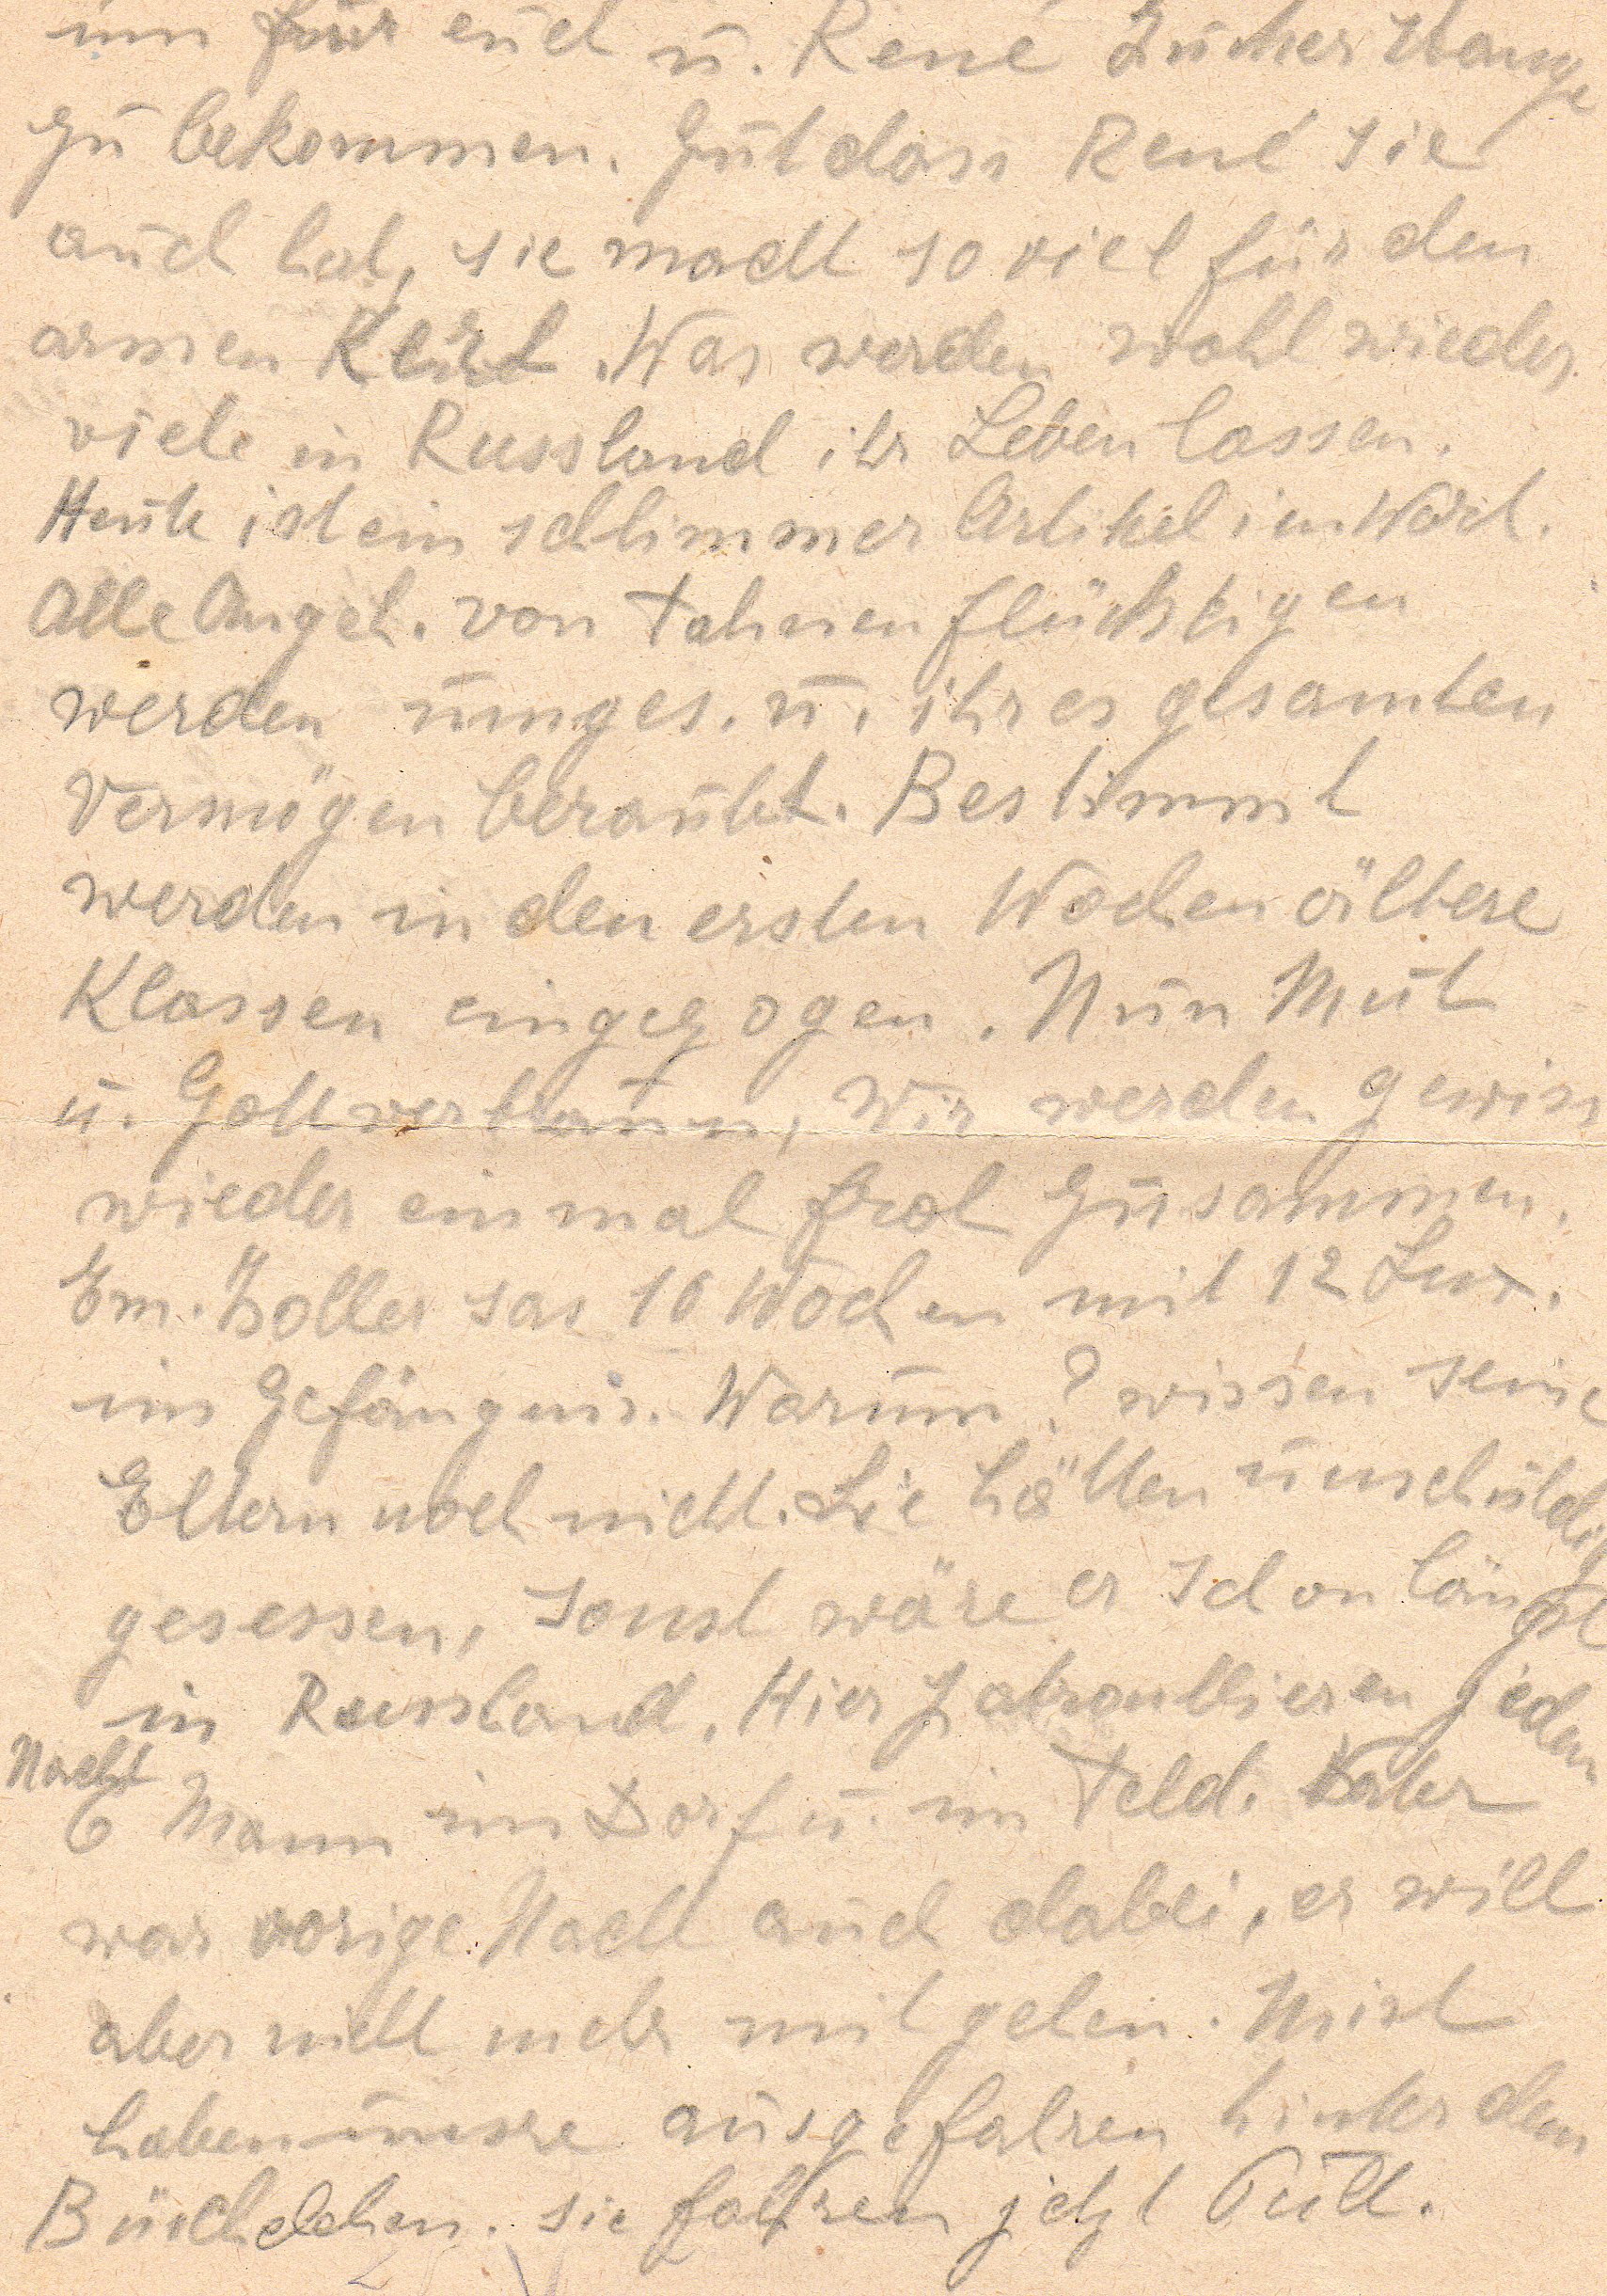 um für euch u. René Zucker Klange
zu bekommen. Gut dass René sie
auch hat, sie macht so viel für den
armen Kerl. Was werden wohl wieder
viele in Russland ihr Leben lassen.
Heute ist ein schlimmer Artikel im Wort.
Alle Angeh. von Fahnenflüchtigen
werden umges. u. ihres gesamten
Vermögen beraubt. Bestimmt
werden in den ersten Wochen ältere
Klassen eingezogen. Nun Mut
u. Gottvertraun, wir werden gewiss
wieder einmal froh zusammen.
Em. Zoller sas 10 Wochen mit 12 Lux.
im Gefängnis. Warum? wissen seine
Eltern noch nicht. Sie hätten unschuldig
gesessen, sonst wäre er schon längst
in Russland. Hier patroullieren jeden
Nacht
6 Mann im Dorf u. im Feld. Vater
war vorige Nacht auch dabei, er will
aber nicht mehr mit gehen. Mist
haben unsre ausgefahren hinter dem
Büschelchen. sie fahren jetzt Püll.